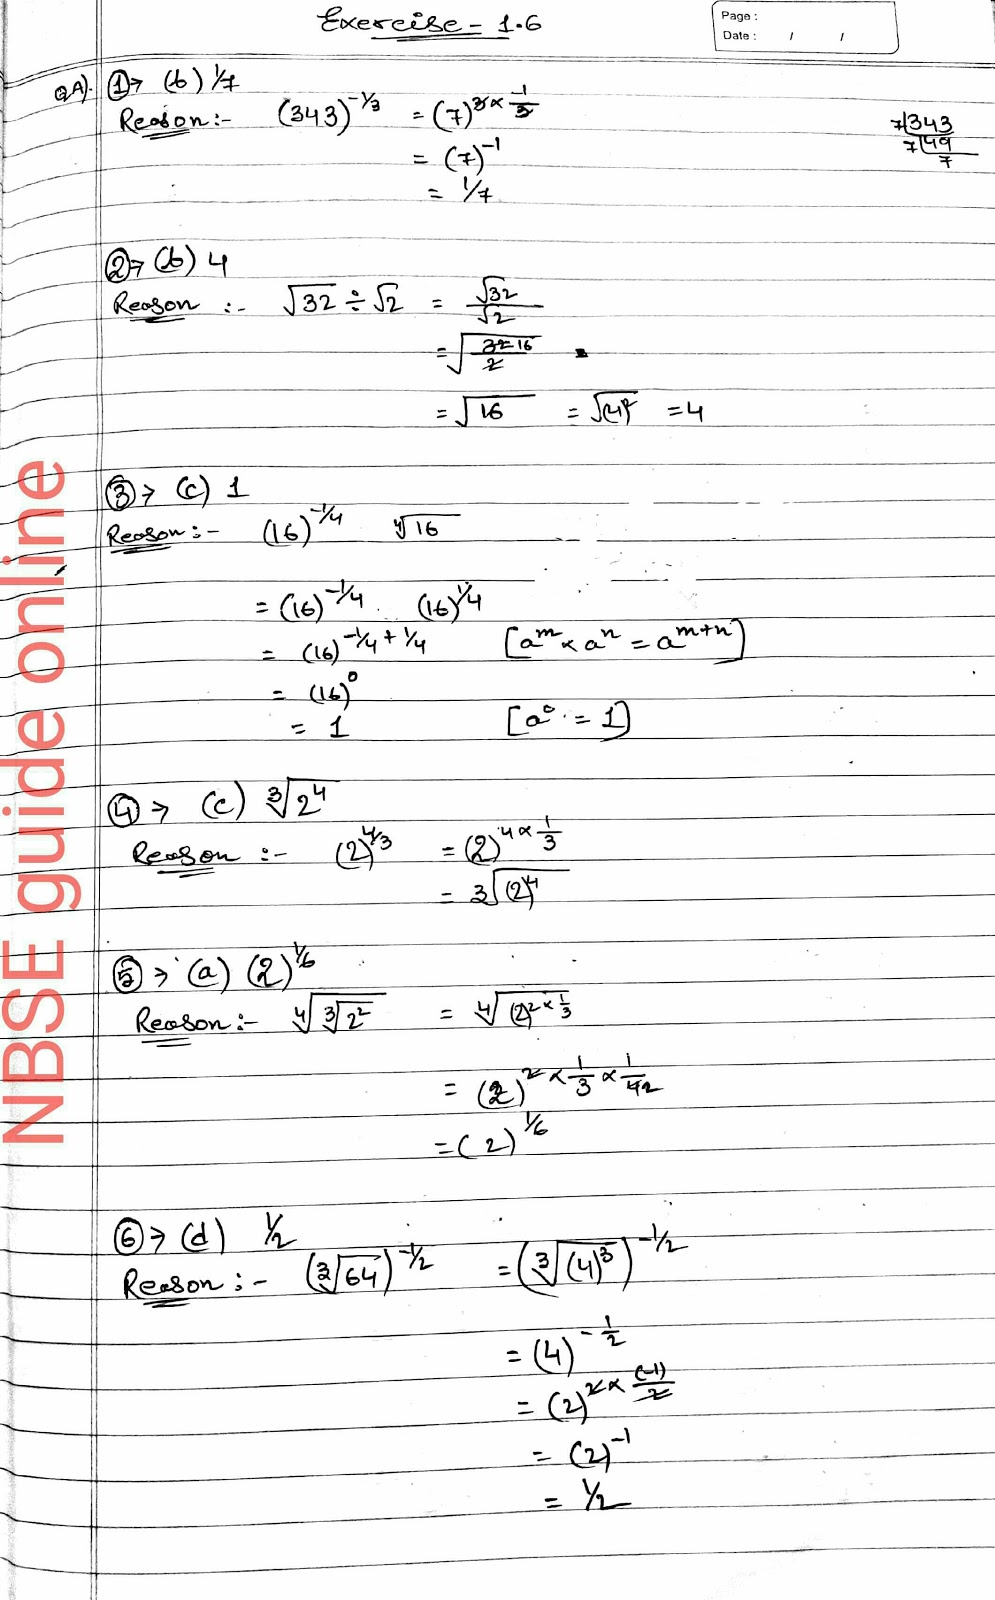 Exercise - 1.6
Page :
Date : / /
QA). ①→ (b) 1/7
Reason :- (343)^-1/3 = (7)^3×-1/3
7|343
7|49
7
= (7)^-1
= 1/7
②→ (b) 4
Reason :- √32 ÷ √2 = √32/√2
= √32 16/2
= √16 = √(4)² = 4
③→ (c) 1
Reason :- (16)^-1/4 ∜16
= (16)^-1/4 . (16)^1/4
= (16)^-1/4 + 1/4 [a^m × a^n = a^m+n]
= (16)^0
= 1 [a^0 = 1]
④→ (c) ∛2^4
Reason :- (2)^4/3 = (2)^4×1/3
= ∛(2)^4
⑤→ (a) (2)^1/6
Reason :- ∜∛2² = ∜(2)^2×1/3
= (2)^2×1/3×1/4 2
= (2)^1/6
⑥→ (d) 1/2
Reason :- (∛64)^-1/2 = (∛(4)³)^-1/2
= (4)^-1/2
= (2)^2×(-1)/2
= (2)^-1
= 1/2
NBSE guide online